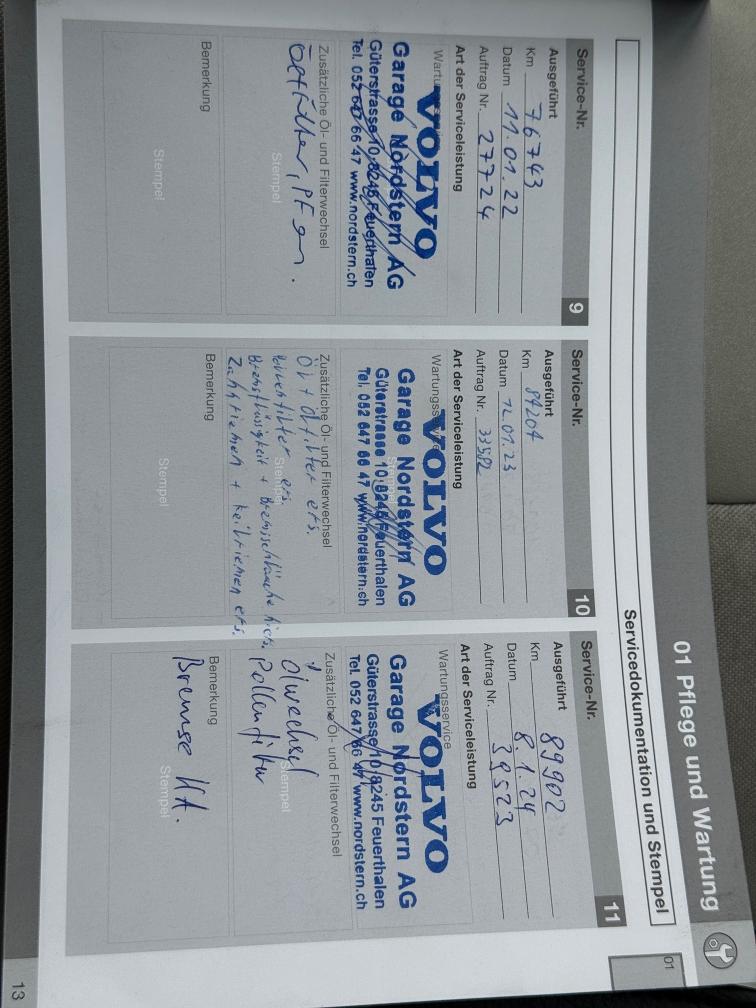 01 Pflege und Wartung
01
Servicedokumentation und Stempel
Service-Nr. 9
Ausgeführt
Km 76743
Datum 11.01.22
Auftrag Nr. 27724
Art der Serviceleistung
Wartu
VOLVO
Garage Nordstern AG
Güterstrasse 10, 8245 Feuerthalen
Tel. 052 647 66 47 www.nordstern.ch
Zusätzliche Öl- und Filterwechsel
Stempel
Bemerkung
Stempel
Service-Nr. 10
Ausgeführt
Km 84204
Datum 12.01.23
Auftrag Nr.
Art der Serviceleistung
Wartungsservice
VOLVO
Garage Nordstern AG
Güterstrasse 10, 8245 Feuerthalen
Tel. 052 647 66 47 www.nordstern.ch
Zusätzliche Öl- und Filterwechsel
Öl + Ölfilter ers.
ers.
Stempel
Bremsflüssigkeit + Bremsschläuche
Zahnriemen + Keilriemen ers.
Bemerkung
Stempel
Service-Nr. 11
Ausgeführt
Km 89902
Datum 8.1.24
Auftrag Nr. 39523
Art der Serviceleistung
Wartungsservice
VOLVO
Garage Nordstern AG
Güterstrasse 10, 8245 Feuerthalen
Tel. 052 647 66 47 www.nordstern.ch
Zusätzliche Öl- und Filterwechsel
Ölwechsel
Stempel
Pollenfilter
Bemerkung
Bremse HA.
Stempel
13